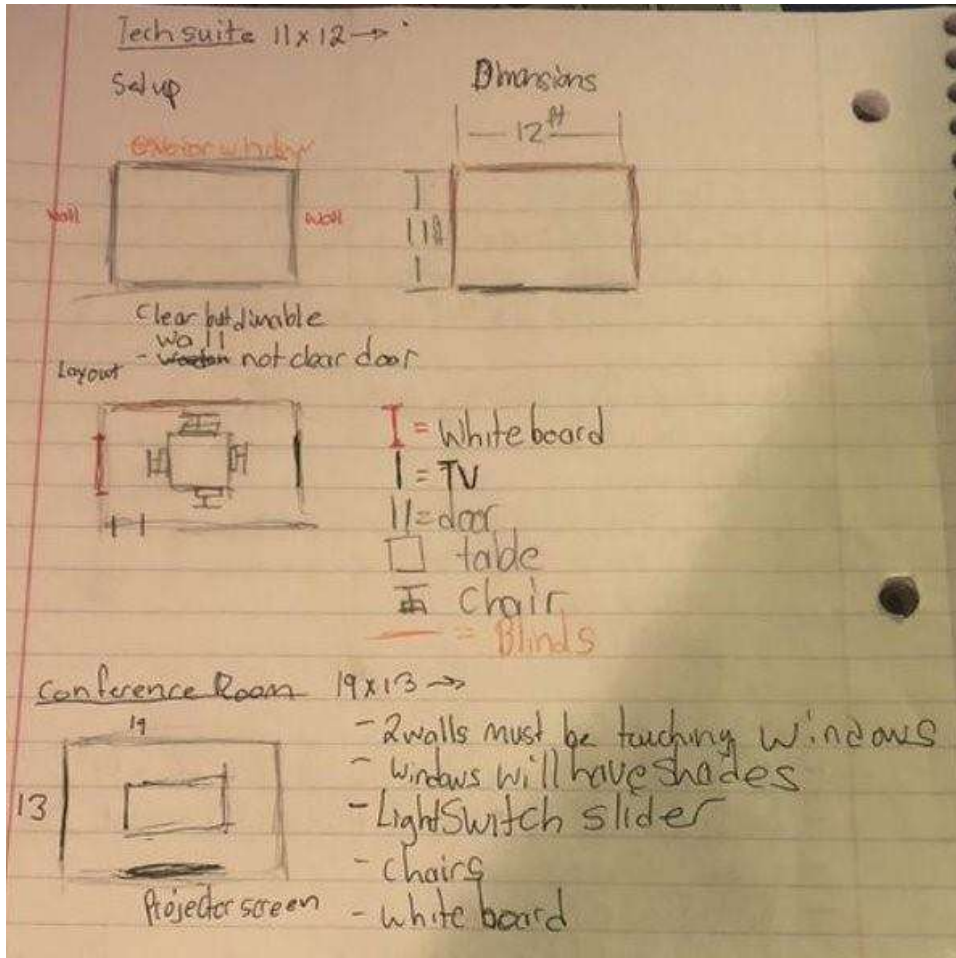 Tech suite 11 x 12 →
Set up
Dimensions
12 ft
wall
wall
11 ft
Clear but dimable
wall
- not clear door
Layout
I = White board
I = TV
II = door
table
chair
— = Blinds
Conference Room 19x13 →
19
13
Projector screen
- 2 walls must be touching windows
- windows will have shades
- Light Switch slider
- chairs
- white board